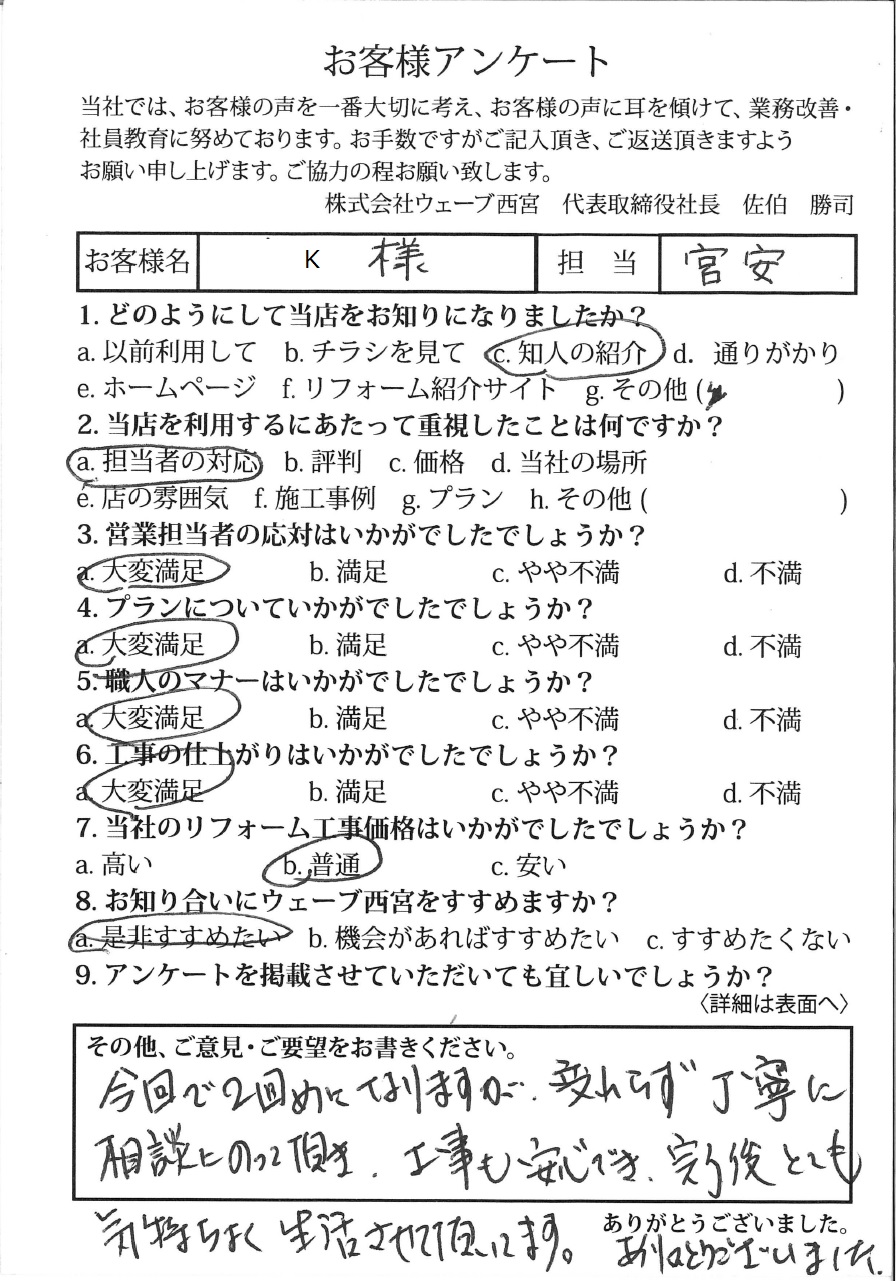 お客様アンケート
当社では、お客様の声を一番大切に考え、お客様の声に耳を傾けて、業務改善・
社員教育に努めております。お手数ですがご記入頂き、ご返送頂きますよう
お願い申し上げます。ご協力の程お願い致します。
株式会社ウェーブ西宮 代表取締役社長 佐伯 勝司
お客様名 K 様 担 当 宮安
1. どのようにして当店をお知りになりましたか？
a. 以前利用して b. チラシを見て c. 知人の紹介 d. 通りがかり
e. ホームページ f. リフォーム紹介サイト g. その他 ( )
2. 当店を利用するにあたって重視したことは何ですか？
a. 担当者の対応 b. 評判 c. 価格 d. 当社の場所
e. 店の雰囲気 f. 施工事例 g. プラン h. その他 ( )
3. 営業担当者の応対はいかがでしたでしょうか？
a. 大変満足 b. 満足 c. やや不満 d. 不満
4. プランについていかがでしたでしょうか？
a. 大変満足 b. 満足 c. やや不満 d. 不満
5. 職人のマナーはいかがでしたでしょうか？
a. 大変満足 b. 満足 c. やや不満 d. 不満
6. 工事の仕上がりはいかがでしたでしょうか？
a. 大変満足 b. 満足 c. やや不満 d. 不満
7. 当社のリフォーム工事価格はいかがでしたでしょうか？
a. 高い b. 普通 c. 安い
8. お知り合いにウェーブ西宮をすすめますか？
a. 是非すすめたい b. 機会があればすすめたい c. すすめたくない
9. アンケートを掲載させていただいても宜しいでしょうか？
〈詳細は表面へ〉
その他、ご意見・ご要望をお書きください。
今回で2回めになりますが、変わらず丁寧に
相談にのって頂き、工事も安心でき、完了後とても
気持ちよく生活させて頂いてます。
ありがとうございました。
ありがとうございました。